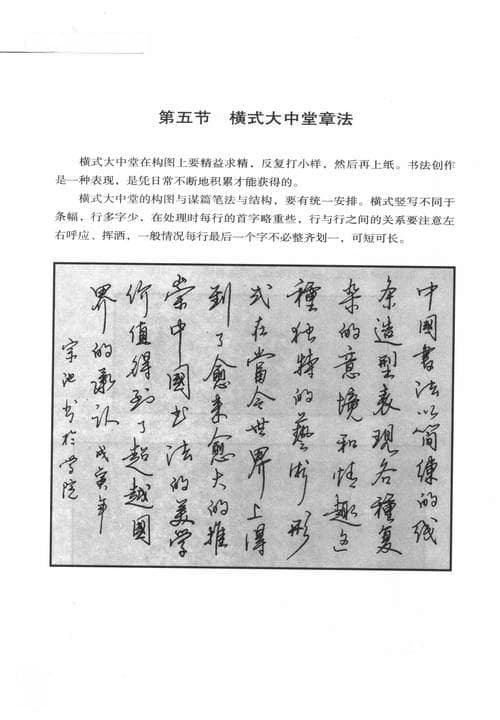 第五节 横式大中堂章法
横式大中堂在构图上要精益求精，反复打小样，然后再上纸。书法创作
是一种表现，是凭日常不断地积累才能获得的。
横式大中堂的构图与谋篇笔法与结构，要有统一安排。横式竖写不同于
条幅，行多字少，在处理时每行的首字略重些，行与行之间的关系要注意左
右呼应、挥洒，一般情况每行最后一个字不必整齐划一，可短可长。
中國書法以简練的线
条造型表現各種复
杂的意境和情趣这
種独特的藝術形
式在當今世界上得
到了愈来愈大的推
崇中國书法的美学
价值得到了超越國
界的承认戊寅年
宗池书於学院